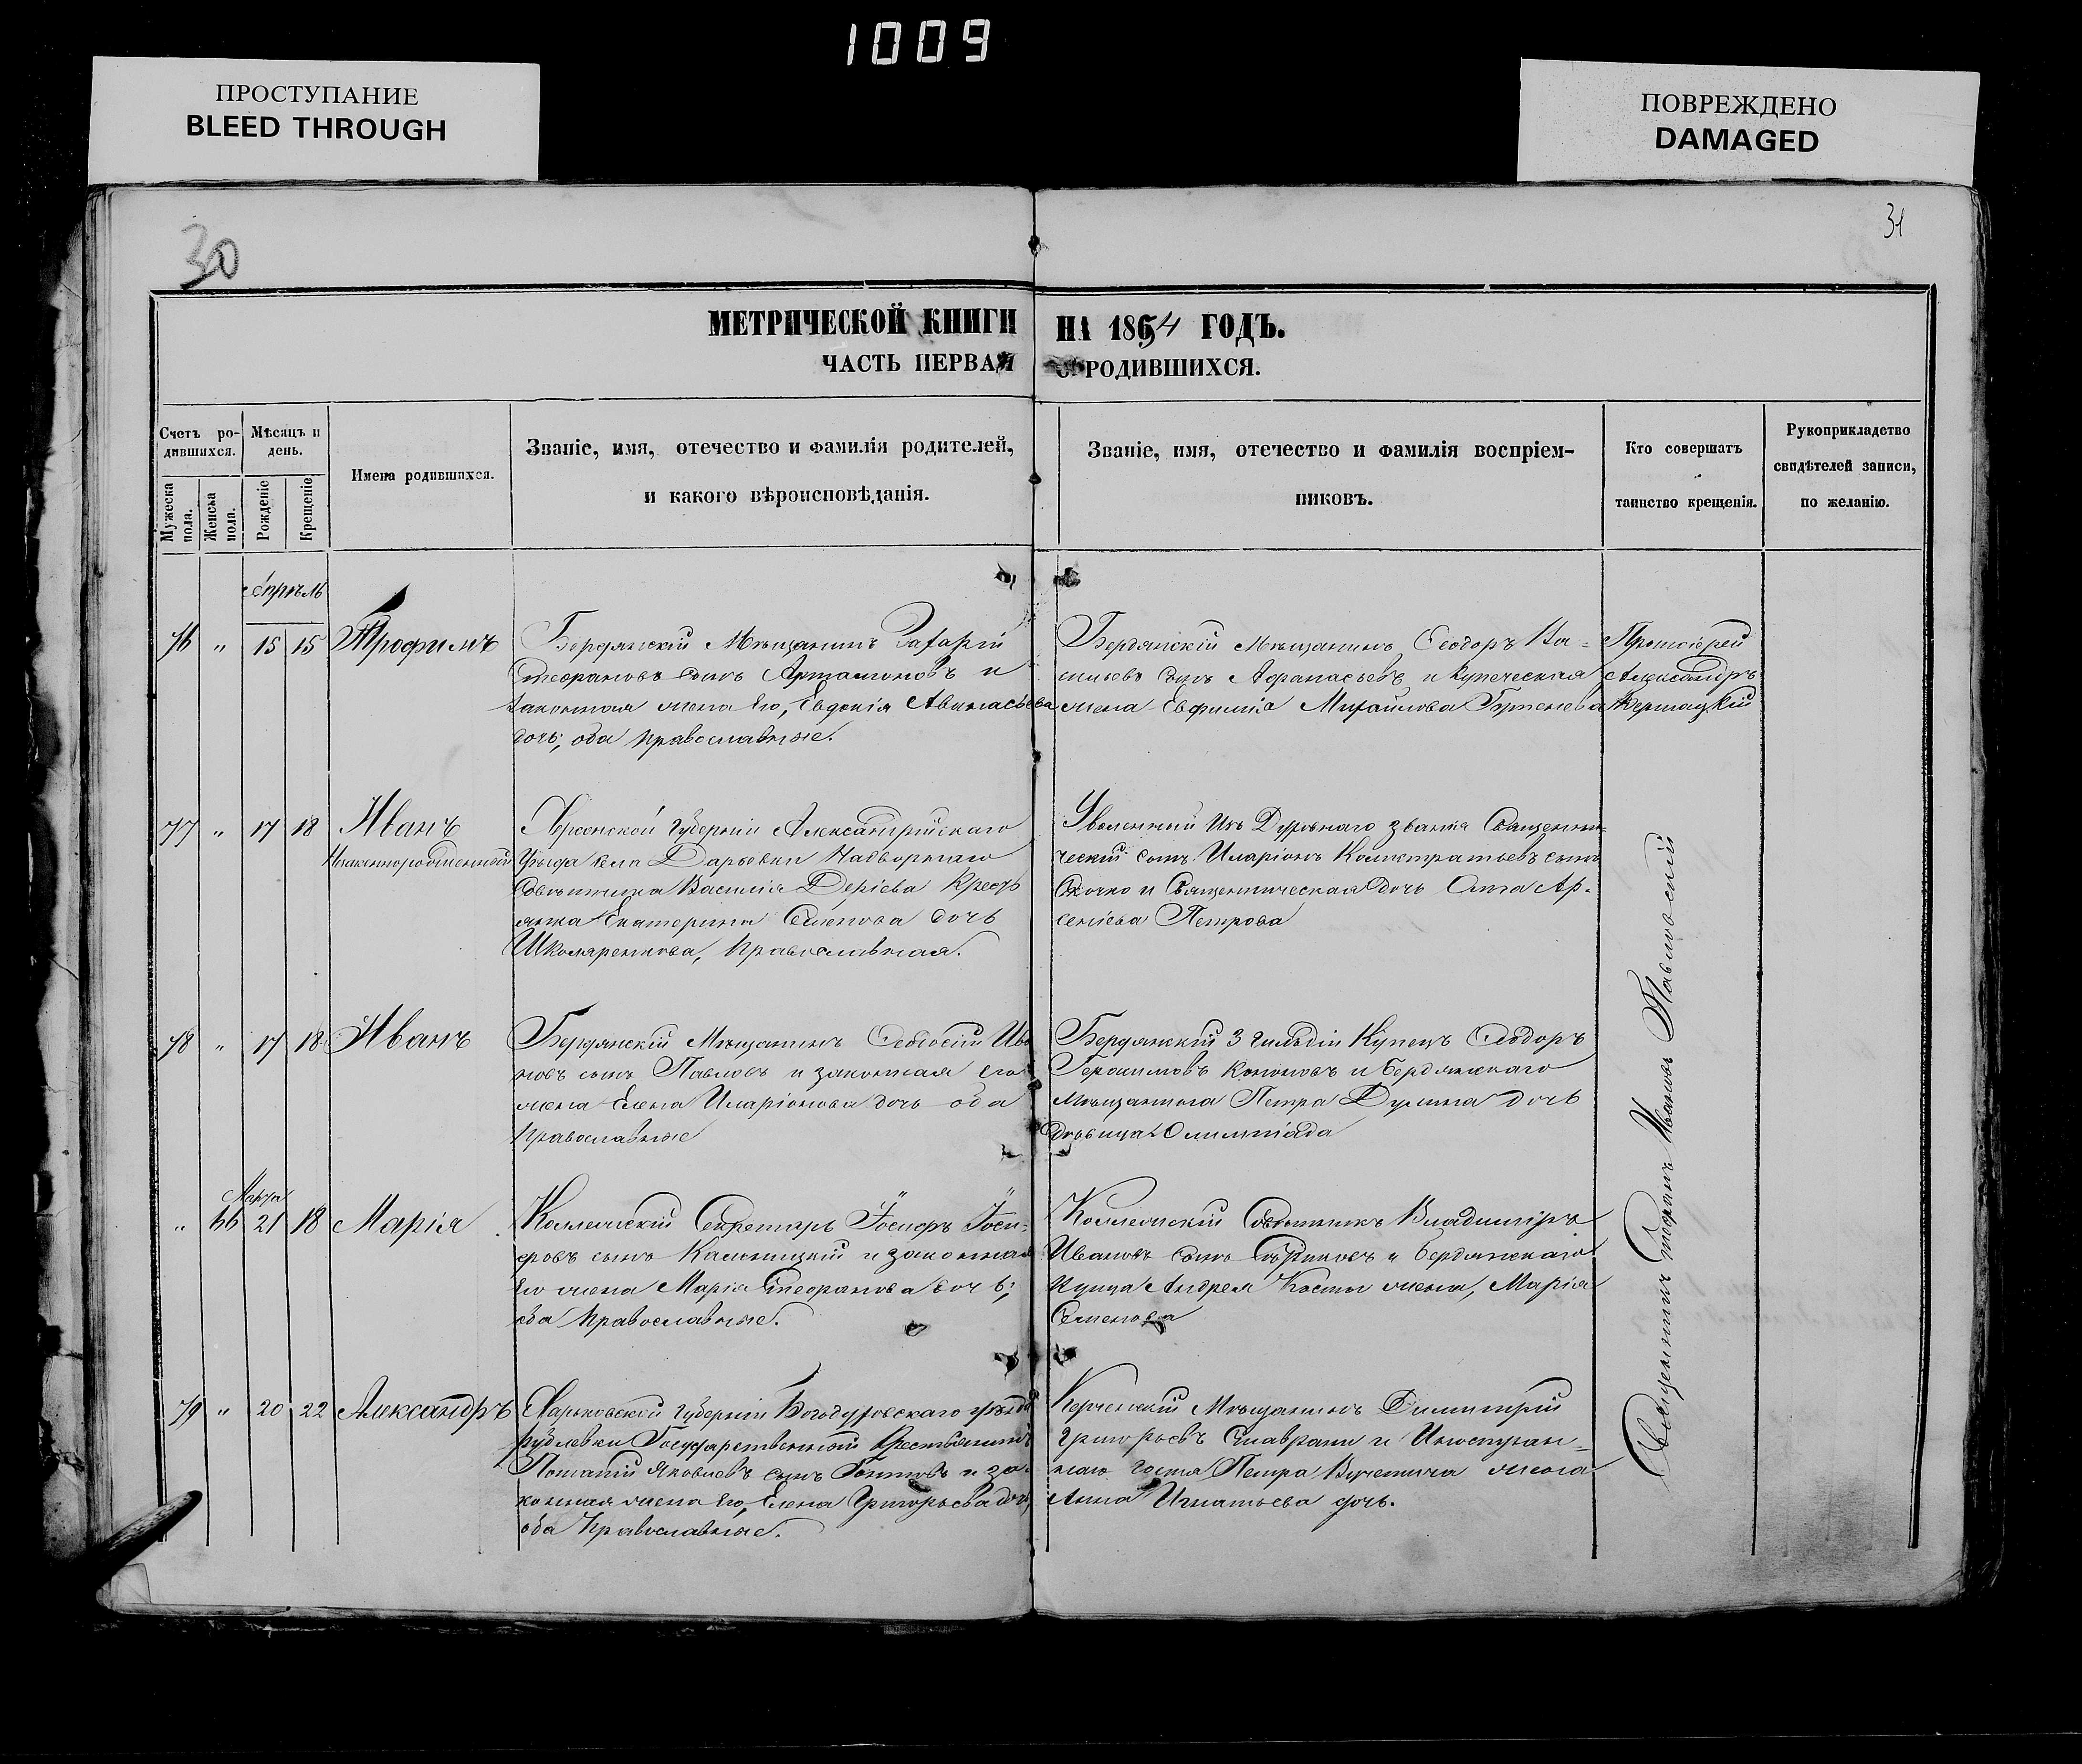 1009
ПРОСТУПАНИЕ
BLEED THROUGH
ПОВРЕЖДЕНО
DAMAGED
30
31
МЕТРИЧЕСКОЙ КНИГИ НА 1864 ГОДЪ.
ЧАСТЬ ПЕРВАЯ РОДИВШИХСЯ.
Счетъ ро-
дившихся.
Мужеска пола.
Женска пола.
Мѣсяцъ и
день.
Рожденіе
Крещеніе
Имена родившихся.
Званіе, имя, отечество и фамилія родителей,
и какого вѣроисповѣданія.
Званіе, имя, отечество и фамилія воспріем-
никовъ.
Кто совершатъ
таинство крещенія.
Рукоприкладство
свидѣтелей записи,
по желанію.
Апрѣль
76 " 15 15 Трофимъ
Бердянскій Мѣщанинъ Захарій
Стефановъ сынъ Артамоновъ и
законная жена Его, Евдокія
дочь, оба православные.
Бердянскій Мѣщанинъ Феодоръ
сынъ Афанасьевъ и купеческая
жена Евфимія Михайлова
Протоіерей
Александръ
77 " 17 18 Иванъ
Незаконнорожденный
Херсонской губерніи Александрійскаго
уѣзда села Дарьевки Надворнаго
Совѣтника Василія Деріева Кресть
янка Екатерина Семенова дочь
Школяренкова, православная.
Уволенный изъ Духовнаго званія Священни-
ческій сынъ Иларіонъ Калистратьевъ сынъ
и Священническая дочь Анна Ар-
сеніева Петрова
78 " 17 18 Иванъ
Бердянскій Мѣщанинъ Феодосій Ива
новъ сынъ Павловъ и законная его
жена Елена Иларіонова дочь оба
православные
Бердянскій 3 гильдіи Купецъ Феодоръ
Герасимовъ Кононовъ и Бердянскаго
Мѣщанина Петра дочь
дѣвица Олимпіада
Марта
" 66 21 18 Марія
Коллежскій Секретарь Іосифъ Іоси-
фовъ сынъ Каменицкій и законная
Его жена Марія Стефанова дочь;
оба православные.
Коллежскій Совѣтникъ Владиміръ
Ивановъ сынъ и Бердянскаго
купца Андрея Косты жена, Марія
Семенова
79 " 20 22 Александръ
Харьковской губерніи Богодуховскаго уѣзда
Рублевки Государственный Крестьянинъ
Потапій Яковлевъ сынъ и за-
конная жена Его, Елена Григорьева дочь
оба православные.
Керченскій Мѣщанинъ Димитрій
Григорьевъ Ставраки и Иностран-
наго гостя Петра Вучетича жена
Анна Игнатьева дочь.
Священникъ Стефанъ Ивановъ Павловскій